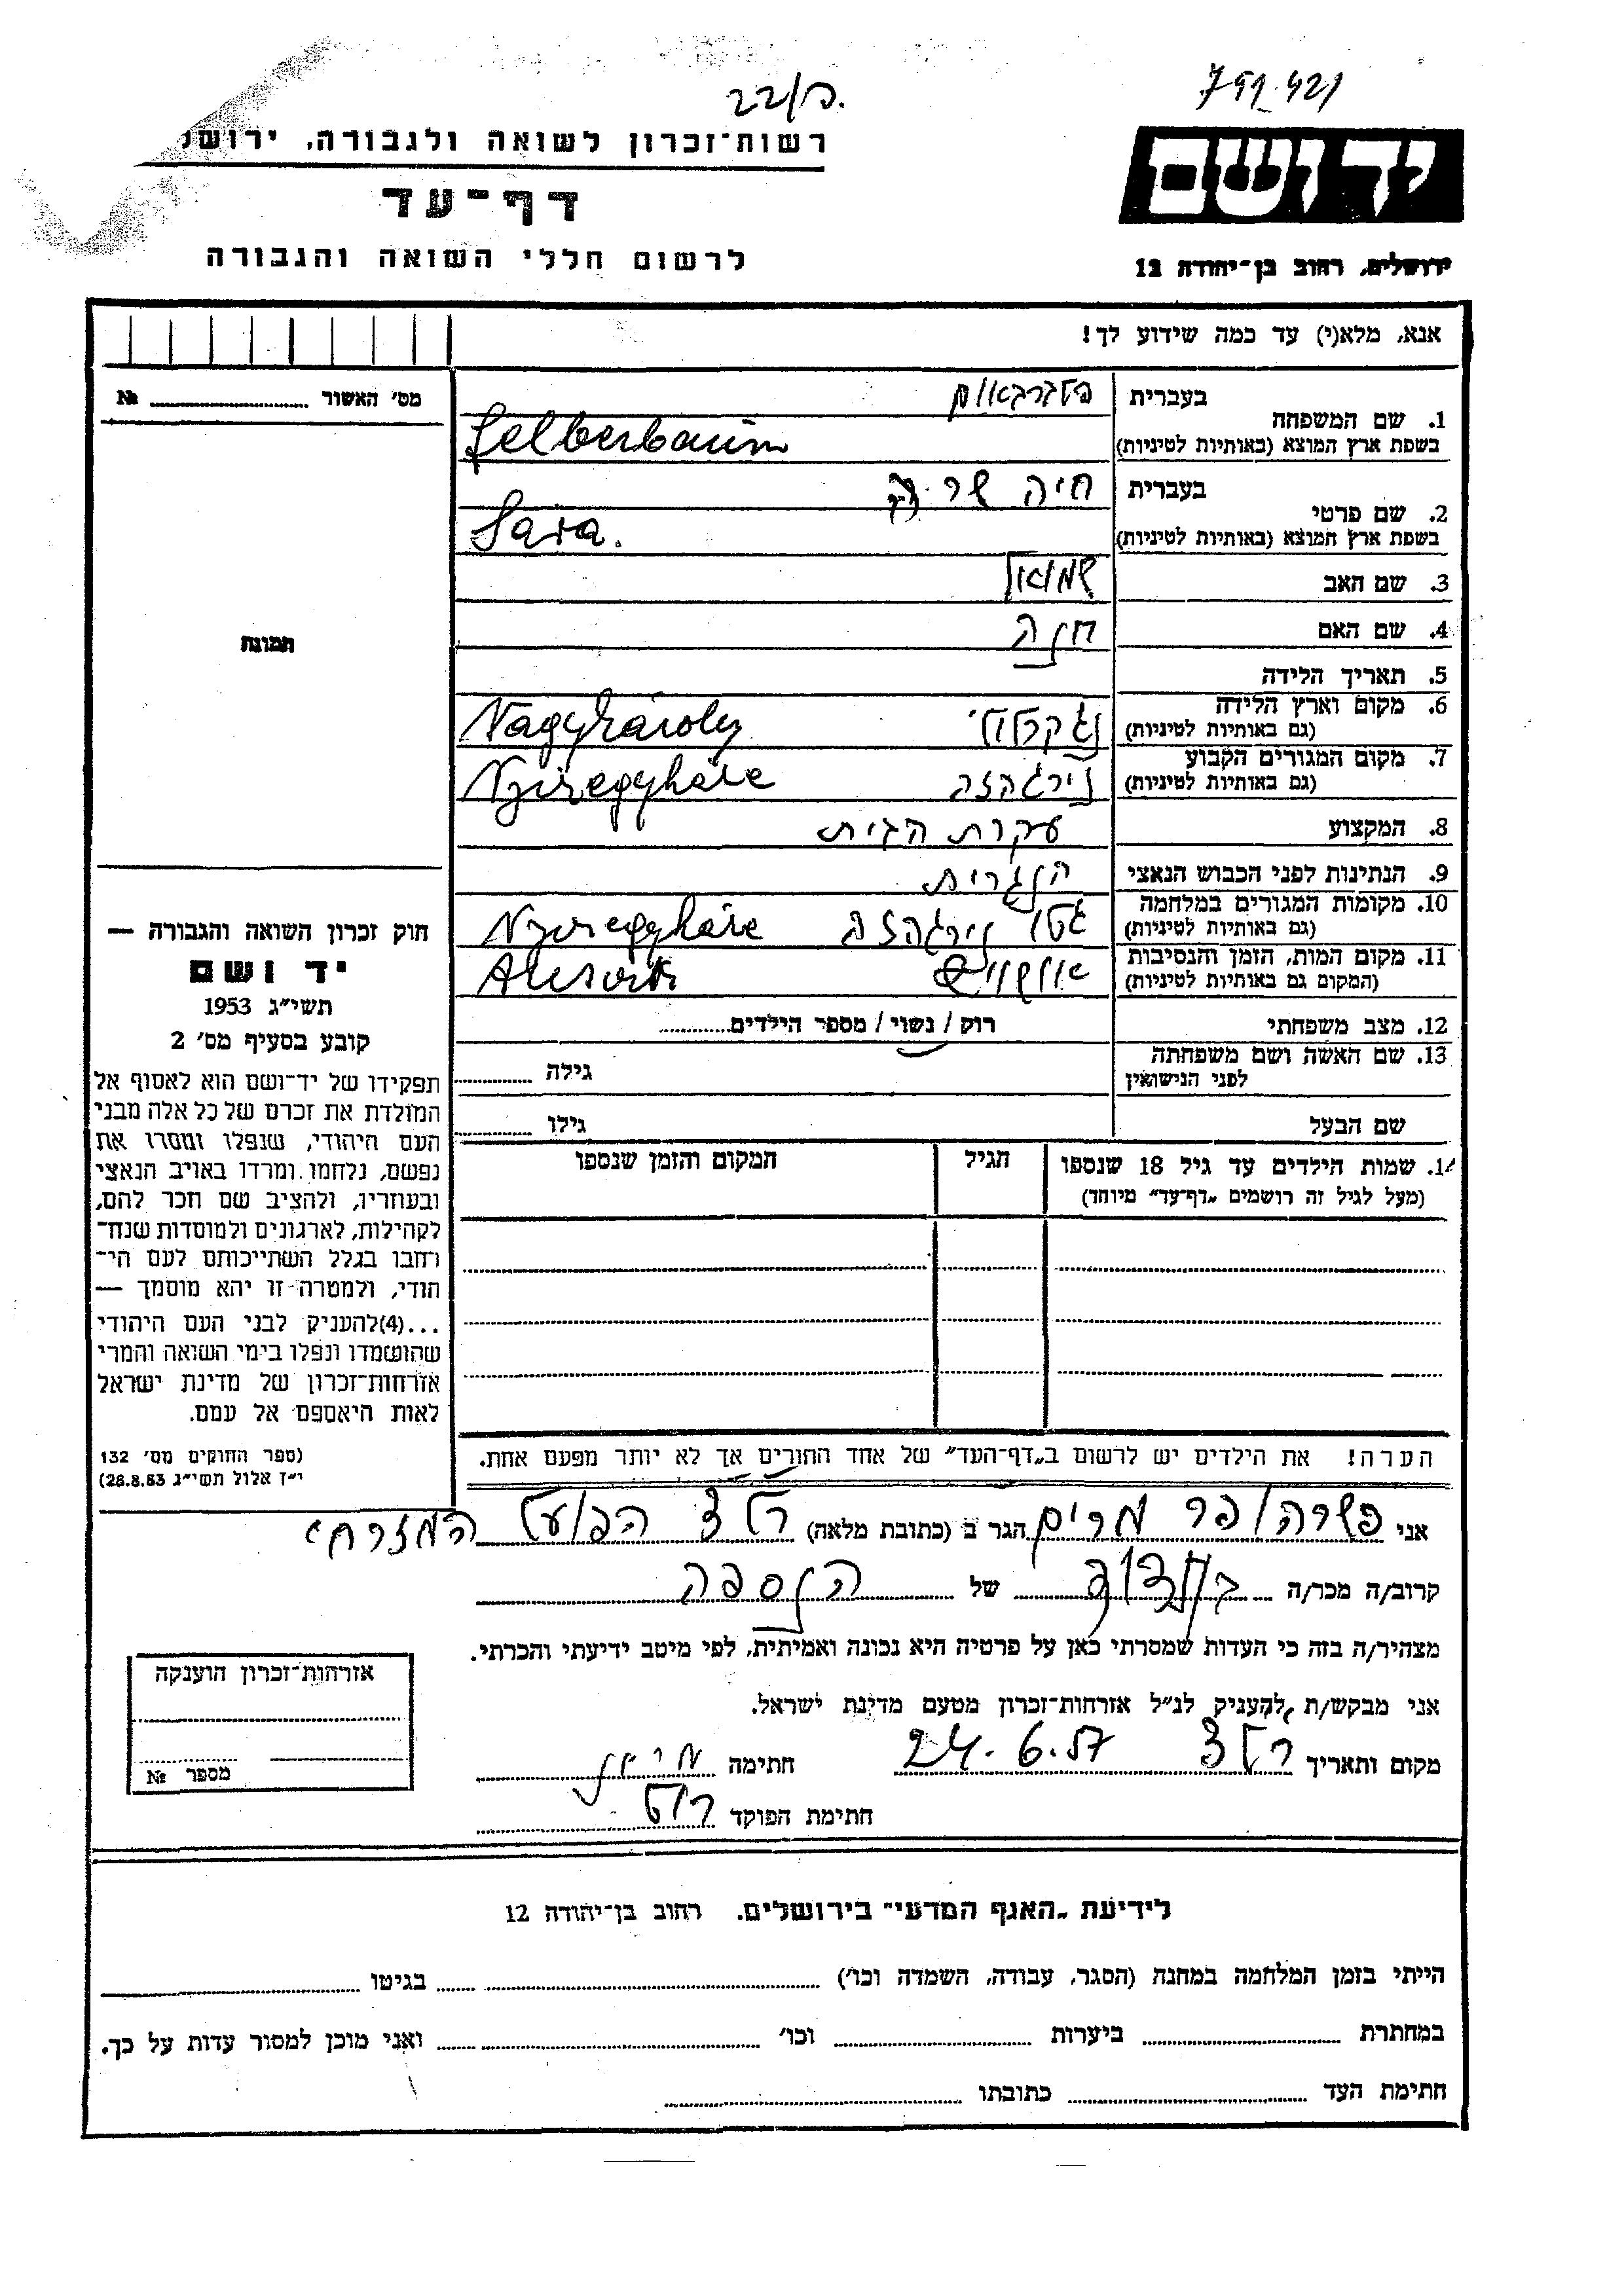 22/ס.
791.421
רשות־זכרון לשואה ולגבורה, ירושל
יד ושם
דף־עד
לרשום חללי השואה והגבורה
ירושלים, רחוב בן־יהודה 12
אנא, מלא(י) עד כמה שידוע לך!
מס׳ האשור № 
תמונה
1. שם המשפחה
בעברית
בשפת ארץ המוצא (באותיות לטיניות)
Selberbaum
2. שם פרטי
בעברית חיה שרה
בשפת ארץ המוצא (באותיות לטיניות)
Sara.
3. שם האב שמואל
4. שם האם חנה
5. תאריך הלידה
6. מקום וארץ הלידה
(גם באותיות לטיניות)
Nagykároly
7. מקום המגורים הקבוע
(גם באותיות לטיניות)
נירגהזה Nyiregyháze
8. המקצוע עקרת הבית
9. הנתינות לפני הכבוש הנאצי הנגרית
10. מקומות המגורים במלחמה
(גם באותיות לטיניות)
גטו נירגהזה Nyiregyháze
11. מקום המות, הזמן והנסיבות
(המקום גם באותיות לטיניות)
אושוויץ
12. מצב משפחתי רוק / נשוי / מספר הילדים
13. שם האשה ושם משפחתה
לפני הנישואין
גילה
שם הבעל גילו
14. שמות הילדים עד גיל 18 שנספו
(מעל לגיל זה רושמים „דף־עד" מיוחד)
הגיל
המקום והזמן שנספו
חוק זכרון השואה והגבורה —
יד ושם
תשי״ג 1953
קובע בסעיף מס׳ 2
תפקידו של יד־ושם הוא לאסוף אל
המולדת את זכרם של כל אלה מבני
העם היהודי, שנפלו ומסרו את
נפשם, נלחמו ומרדו באויב הנאצי
ובעוזריו, ולהציב שם וזכר להם,
לקהילות, לארגונים ולמוסדות שנח־
רבו בגלל השתייכותם לעם הי־
הודי, ולמטרה זו יהא מוסמך —
...(4)להעניק לבני העם היהודי
שהושמדו ונפלו בימי השואה והמרי
אזרחות־זכרון של מדינת ישראל
לאות היאספם אל עמם.
(ספר החוקים מס׳ 132
י״ז אלול תשי״ג 28.8.53)
הערה! את הילדים יש לרשום ב„דף־העד" של אחד ההורים אך לא יותר מפעם אחת.
אני מרים הגר ב (כתובת מלאה) הפועל המזרחי
קרוב/ה מכר/ה של הנספה
מצהיר/ה בזה כי העדות שמסרתי כאן על פרטיה היא נכונה ואמיתית, לפי מיטב ידיעתי והכרתי.
אני מבקש/ת להעניק לנ״ל אזרחות־זכרון מטעם מדינת ישראל.
מקום ותאריך 24.6.57 חתימה
חתימת הפוקד
אזרחות־זכרון הוענקה
מספר №
לידיעת „האגף המדעי" בירושלים. רחוב בן־יהודה 12
הייתי בזמן המלחמה במחנה (הסגר, עבודה, השמדה וכו׳) בגיטו
במחתרת ביערות וכו׳ ואני מוכן למסור עדות על כך.
חתימת העד כתובתו